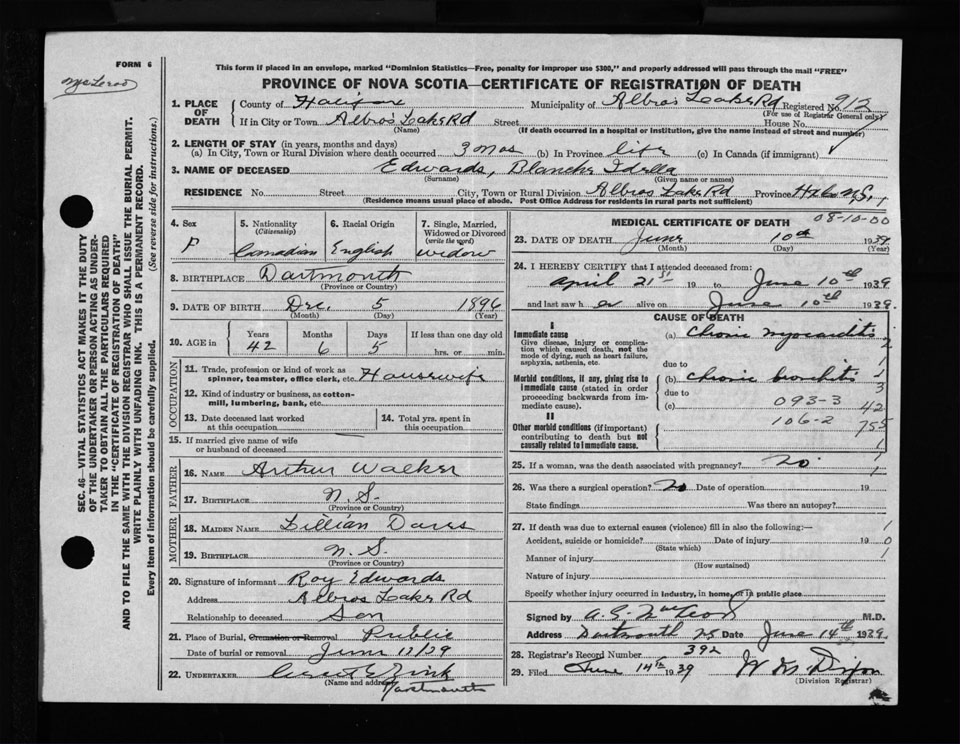 FORM 6
This form if placed in an envelope, marked "Dominion Statistics—Free, penalty for improper use $300," and properly addressed will pass through the mail "FREE"
PROVINCE OF NOVA SCOTIA—CERTIFICATE OF REGISTRATION OF DEATH
SEC. 46—VITAL STATISTICS ACT MAKES IT THE DUTY
OF THE UNDERTAKER OR PERSON ACTING AS UNDER-
TAKER TO OBTAIN ALL THE PARTICULARS REQUIRED
IN THE "CERTIFICATE OF REGISTRATION OF DEATH"
AND TO FILE THE SAME WITH THE DIVISION REGISTRAR WHO SHALL ISSUE THE BURIAL PERMIT.
WRITE PLAINLY WITH UNFADING INK. THIS IS A PERMANENT RECORD.
Every item of information should be carefully supplied. (See reverse side for instructions.)
1. PLACE OF DEATH County of Halifax Municipality of Albro's Lake Rd Registered No. 912
(For use of Registrar General only)
If in City or Town Albro's Lake Rd Street House No.
(Name) (If death occurred in a hospital or institution, give the name instead of street and number)
2. LENGTH OF STAY (in years, months and days)
(a) In City, Town or Rural Division where death occurred 3 mos (b) In Province life (c) In Canada (if immigrant)
3. NAME OF DECEASED Edwards, Blanche Idella
(Surname) (Given name or names)
RESIDENCE No. Street City, Town or Rural Division Albros Lake Rd Province Hfx N.S.
(Residence means usual place of abode. Post Office Address for residents in rural parts not sufficient)
4. Sex F
5. Nationality (Citizenship) Canadian
6. Racial Origin English
7. Single, Married, Widowed or Divorced (write the word) widow
8. BIRTHPLACE Dartmouth
(Province or Country)
9. DATE OF BIRTH Dec. 5 1896
(Month) (Day) (Year)
10. AGE in Years 42 Months 6 Days 5 If less than one day old hrs. or min.
OCCUPATION
11. Trade, profession or kind of work as spinner, teamster, office clerk, etc. Housewife
12. Kind of industry or business, as cotton-mill, lumbering, bank, etc.
13. Date deceased last worked at this occupation
14. Total yrs. spent in this occupation
15. If married give name of wife or husband of deceased
FATHER
16. NAME Arthur Walker
17. BIRTHPLACE N.S.
(Province or Country)
MOTHER
18. MAIDEN NAME Lillian Daws
19. BIRTHPLACE N.S.
(Province or Country)
20. Signature of informant Roy Edwards
Address Albros Lake Rd
Relationship to deceased Son
21. Place of Burial, Cremation or Removal Public
Date of burial or removal June 12/39
22. UNDERTAKER Zink
(Name and address) Dartmouth
MEDICAL CERTIFICATE OF DEATH 08-10-00
23. DATE OF DEATH June 10th 1939
(Month) (Day) (Year)
24. I HEREBY CERTIFY that I attended deceased from:
April 21st 19 to June 10th 1939
and last saw h er alive on June 10th 1939.
CAUSE OF DEATH
I
Immediate cause
Give disease, injury or complication which caused death, not the mode of dying, such as heart failure, asphyxia, asthenia, etc.
(a) Chronic myocarditis
due to
Morbid conditions, if any, giving rise to immediate cause (stated in order proceeding backwards from immediate cause).
(b) Chronic bronchitis
due to
(c) 093-3
II
Other morbid conditions (if important) contributing to death but not causally related to immediate cause.
106-2
42
25. If a woman, was the death associated with pregnancy? no
26. Was there a surgical operation? no Date of operation 19
State findings Was there an autopsy?
27. If death was due to external causes (violence) fill in also the following:—
Accident, suicide or homicide? Date of injury 19
(State which)
Manner of injury
(How sustained)
Nature of injury
Specify whether injury occurred in industry, in home, or in public place
Signed by M.D.
Address Dartmouth NS Date June 14th 1939.
28. Registrar's Record Number 392
29. Filed June 14th 1939 W M Dixon
(Division Registrar)